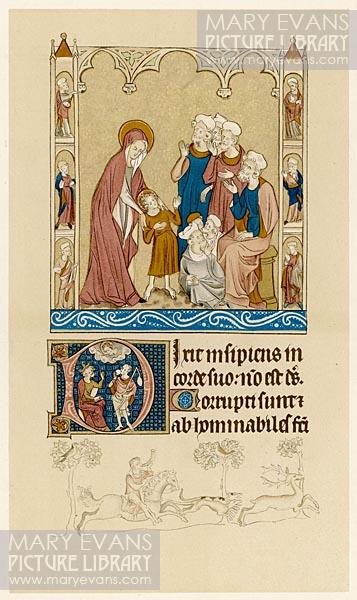 MARY EVANS
PICTURE LIBRARY
www.maryevans.com
Dixit insipiens in
corde suo: nō est ds̄.
Corrupti sunt ⁊
abhominabiles
MARY EVANS
PICTURE LIBRARY
www.maryevans.com